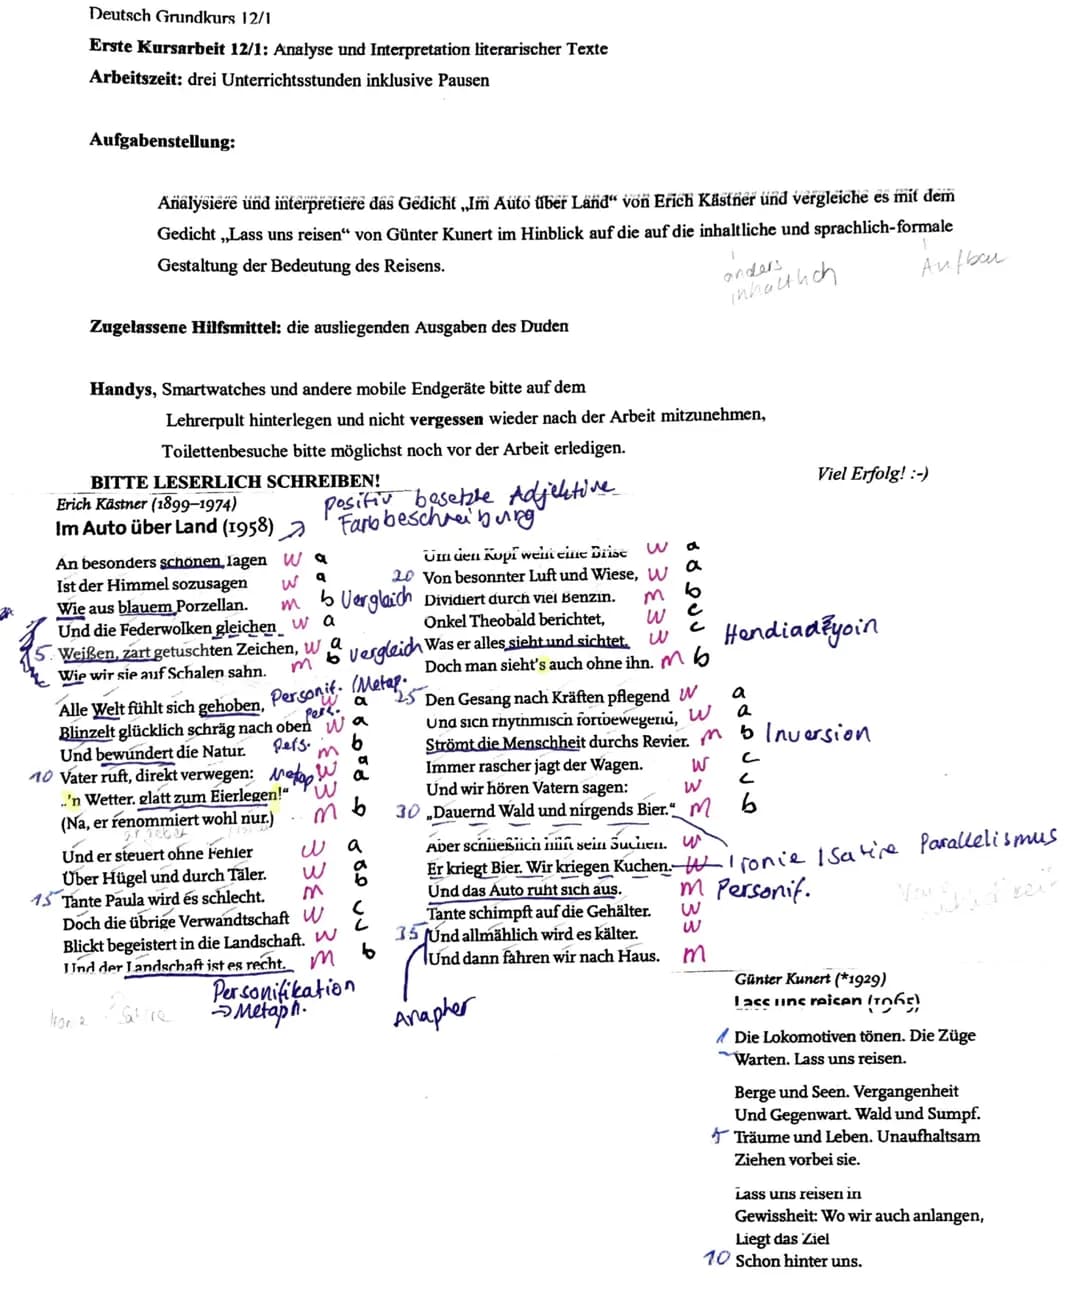 Deutsch Grundkurs 12/1
Erste Kursarbeit 12/1: Analyse und Interpretation literarischer Texte
Arbeitszeit: drei Unterrichtsstunden inklusive Pausen
Aufgabenstellung:
Analysiere und interpretiere das Gedicht „Im Auto über Land“ von Erich Kästner und vergleiche es mit dem
Gedicht „Lass uns reisen“ von Günter Kunert im Hinblick auf die auf die inhaltliche und sprachlich-formale
Gestaltung der Bedeutung des Reisens.
anders
inhaltlich
Aufbau
Zugelassene Hilfsmittel: die ausliegenden Ausgaben des Duden
Handys, Smartwatches und andere mobile Endgeräte bitte auf dem
Lehrerpult hinterlegen und nicht vergessen wieder nach der Arbeit mitzunehmen,
Toilettenbesuche bitte möglichst noch vor der Arbeit erledigen.
BITTE LESERLICH SCHREIBEN!
Viel Erfolg! :-)
Erich Kästner (1899–1974)
Im Auto über Land (1958)
positiv besetzte Adjektive
Farbbeschreibung
An besonders schönen Tagen w a
Ist der Himmel sozusagen w a
Wie aus blauem Porzellan. m b Vergleich
Und die Federwolken gleichen w a
5 Weißen, zart getuschten Zeichen, w a
Wie wir sie auf Schalen sahn. m b Vergleich
Personif. (Metap.
Alle Welt fühlt sich gehoben, w a
Blinzelt glücklich schräg nach oben Pers. w a
Und bewundert die Natur. Pers. m b
10 Vater ruft, direkt verwegen: Metap w a
„'n Wetter, glatt zum Eierlegen!“ w a
(Na, er renommiert wohl nur.) m b
Und er steuert ohne Fehler w a
Über Hügel und durch Täler. w a
15 Tante Paula wird es schlecht. m b
Doch die übrige Verwandtschaft w c
Blickt begeistert in die Landschaft. w c
Und der Landschaft ist es recht. m b
Personifikation
→ Metaph.
Satire
Um den Kopf weht eine Brise w a
20 Von besonnter Luft und Wiese, w a
Dividiert durch viel Benzin. m b
Onkel Theobald berichtet, w c
Was er alles sieht und sichtet. w c
Hendiadyoin
Doch man sieht's auch ohne ihn. m b
25 Den Gesang nach Kräften pflegend w a
Und sich rhythmisch fortbewegend, w a
Strömt die Menschheit durchs Revier. m b Inversion
Immer rascher jagt der Wagen. w c
Und wir hören Vatern sagen: w c
30 „Dauernd Wald und nirgends Bier.“ m b
Aber schließlich hilft sein Suchen. w
Er kriegt Bier. Wir kriegen Kuchen. w Ironie / Satire Parallelismus
Und das Auto ruht sich aus. m Personif.
Tante schimpft auf die Gehälter. w
35 Und allmählich wird es kälter. w
Und dann fahren wir nach Haus. m
Anapher
Günter Kunert (*1929)
Lass uns reisen (1965)
1 Die Lokomotiven tönen. Die Züge
Warten. Lass uns reisen.
Berge und Seen. Vergangenheit
Und Gegenwart. Wald und Sumpf.
5 Träume und Leben. Unaufhaltsam
Ziehen vorbei sie.
Lass uns reisen in
Gewissheit: Wo wir auch anlangen,
Liegt das Ziel
10 Schon hinter uns.